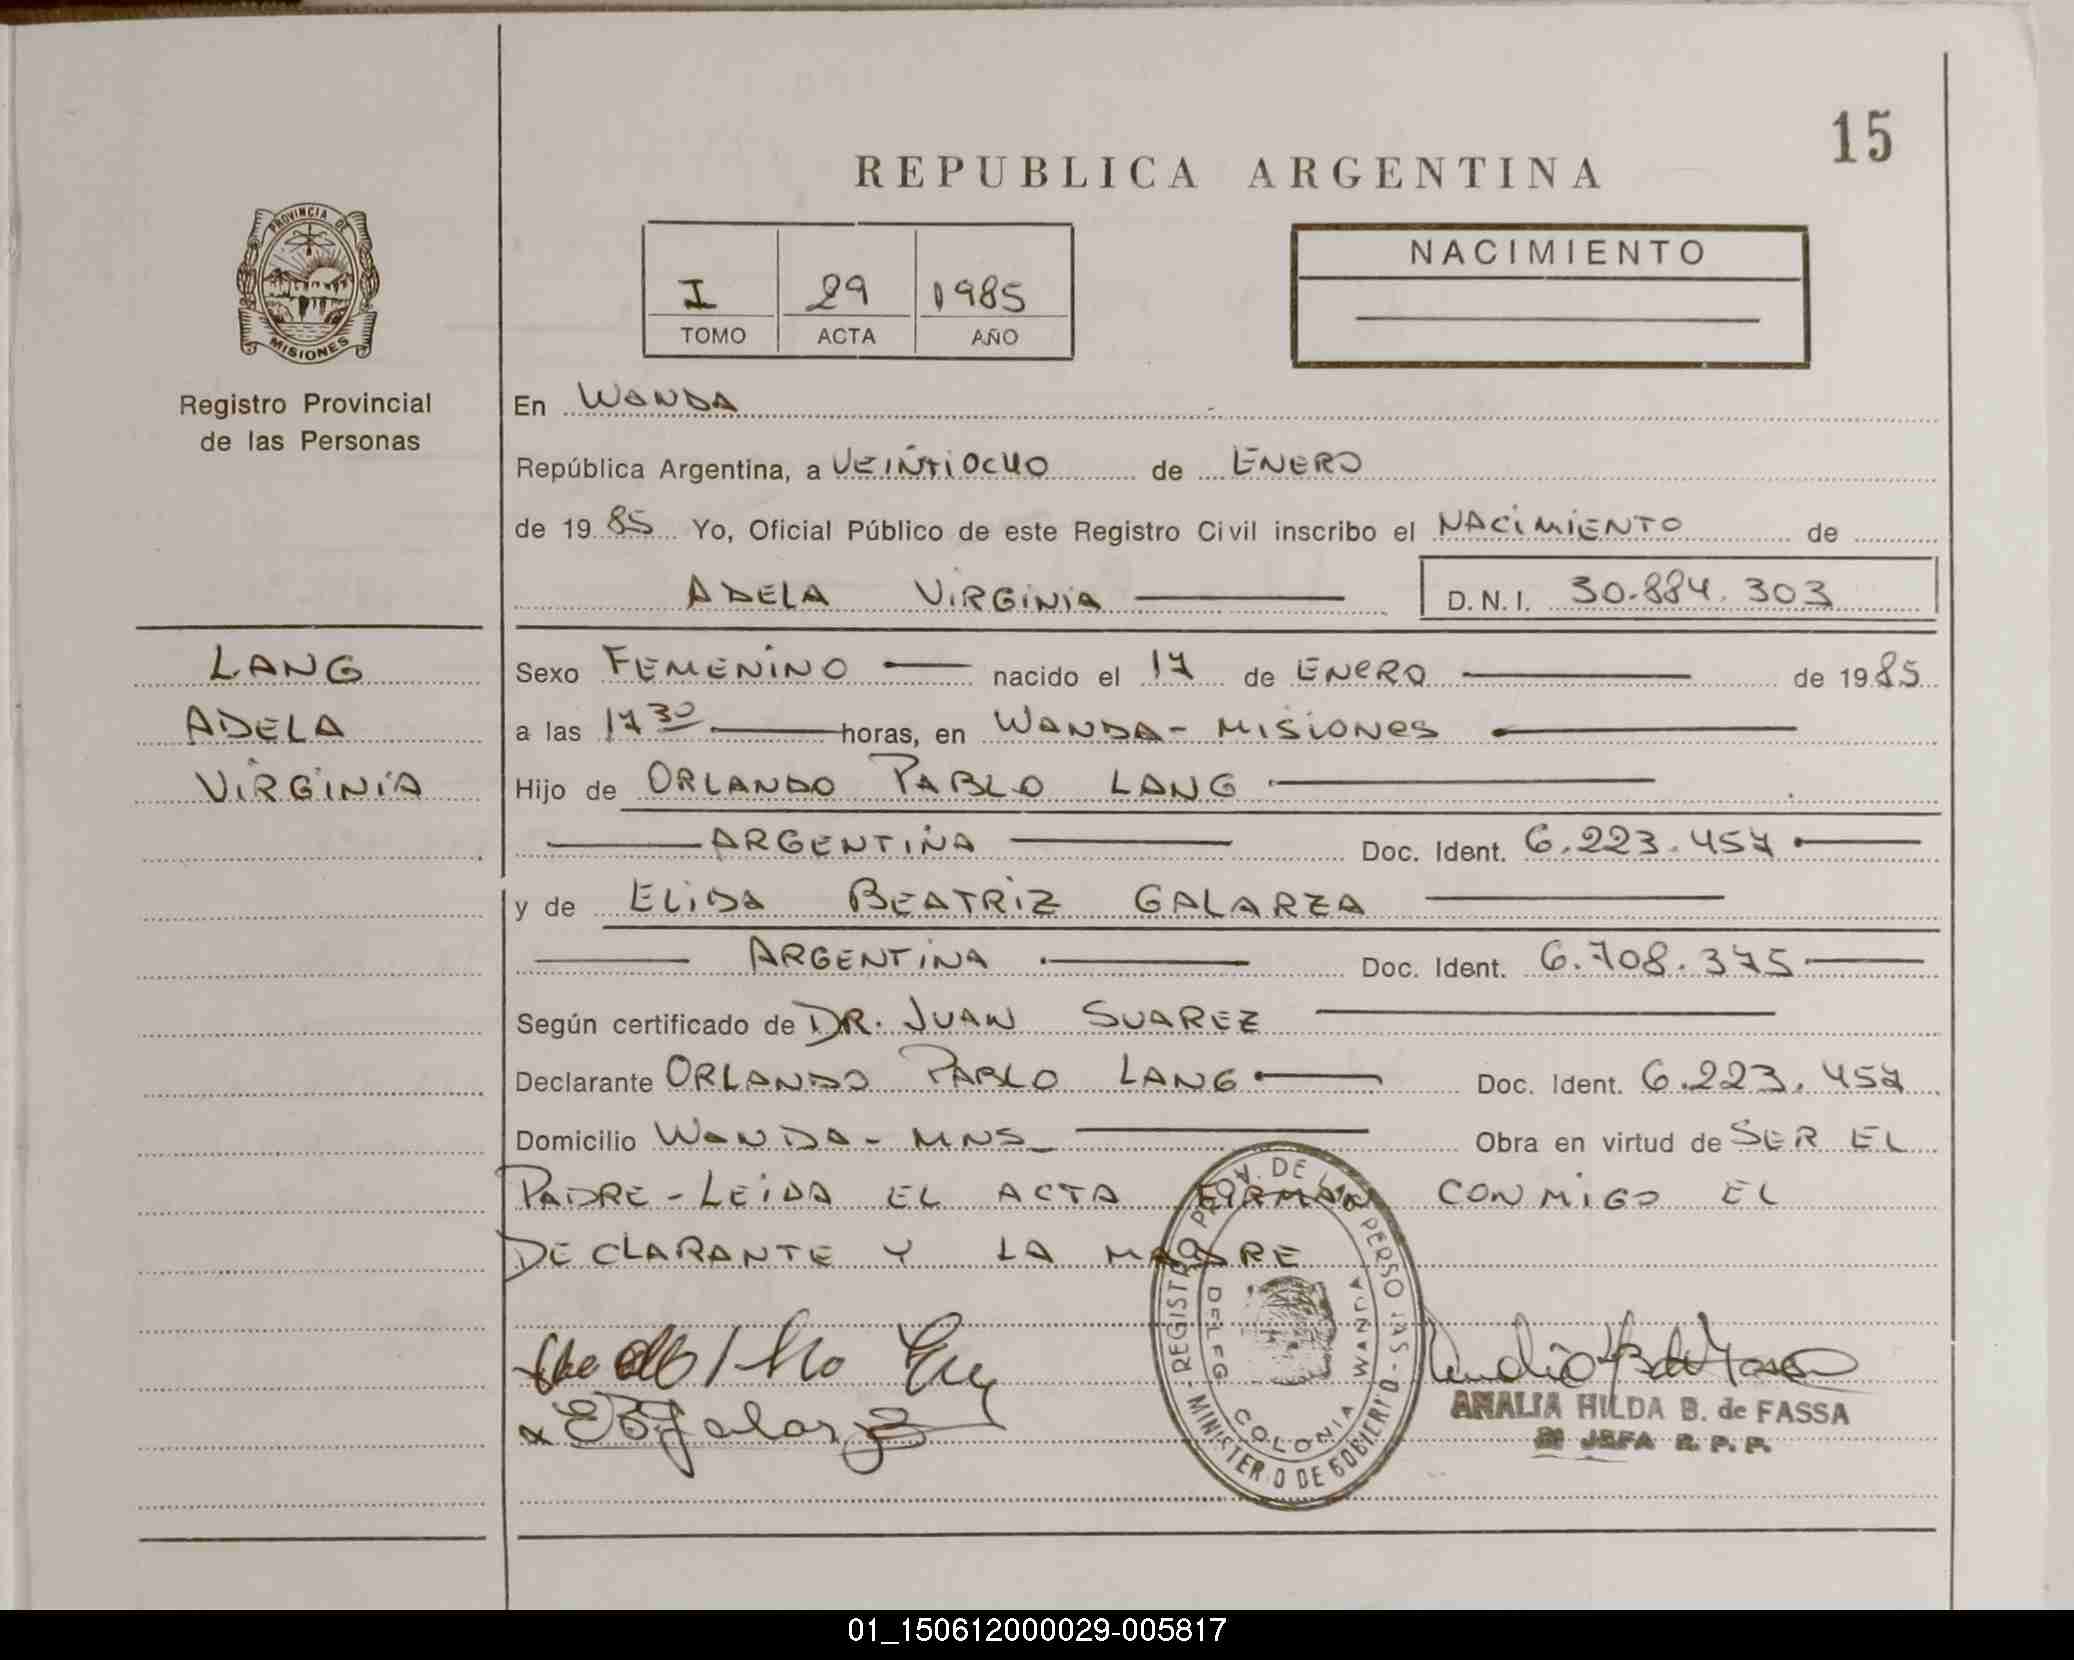 15
REPUBLICA ARGENTINA
PROVINCIA DE
MISIONES
Registro Provincial
de las Personas
I 29 1985
TOMO ACTA AÑO
NACIMIENTO
En WANDA
República Argentina, a VEINTIOCHO de ENERO
de 1985 Yo, Oficial Público de este Registro Civil inscribo el NACIMIENTO de
ADELA VIRGINIA D.N.I. 30.884.303
LANG
ADELA
VIRGINIA
Sexo FEMENINO nacido el 17 de ENERO de 1985
a las 17 30 horas, en WANDA - MISIONES
Hijo de ORLANDO PABLO LANG
ARGENTINA Doc. Ident. 6.223.457
y de ELIDA BEATRIZ GALARZA
ARGENTINA Doc. Ident. 6.708.375
Según certificado de DR. JUAN SUAREZ
Declarante ORLANDO PABLO LANG Doc. Ident. 6.223.457
Domicilio WANDA - MNS_ Obra en virtud de SER EL
PADRE - LEIDA EL ACTA FIRMAN CONMIGO EL
DECLARANTE Y LA MADRE
REGISTRO PROV. DE LAS PERSONAS - MINISTERIO DE GOBIERNO
DELEG COLONIA WANDA
EBGalarza
AMALIA HILDA B. de FASSA
JEFA R. P. P.
01_150612000029-005817